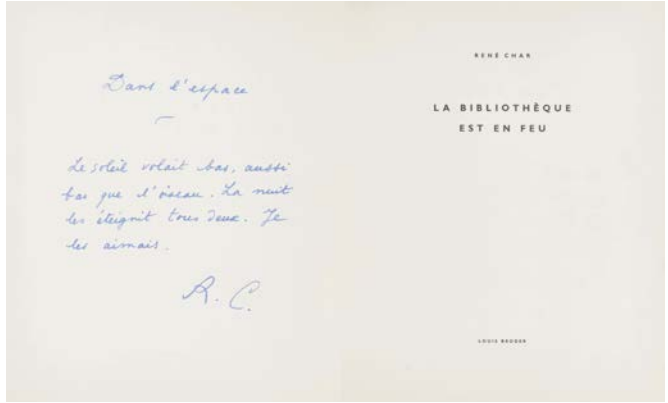 Dans l'espace
Le soleil volait bas, aussi
bas que l'oiseau. La nuit
les éteignit tous deux. Je
les aimais.
R. C.
RENÉ CHAR
LA BIBLIOTHÈQUE
EST EN FEU
LOUIS BRODER